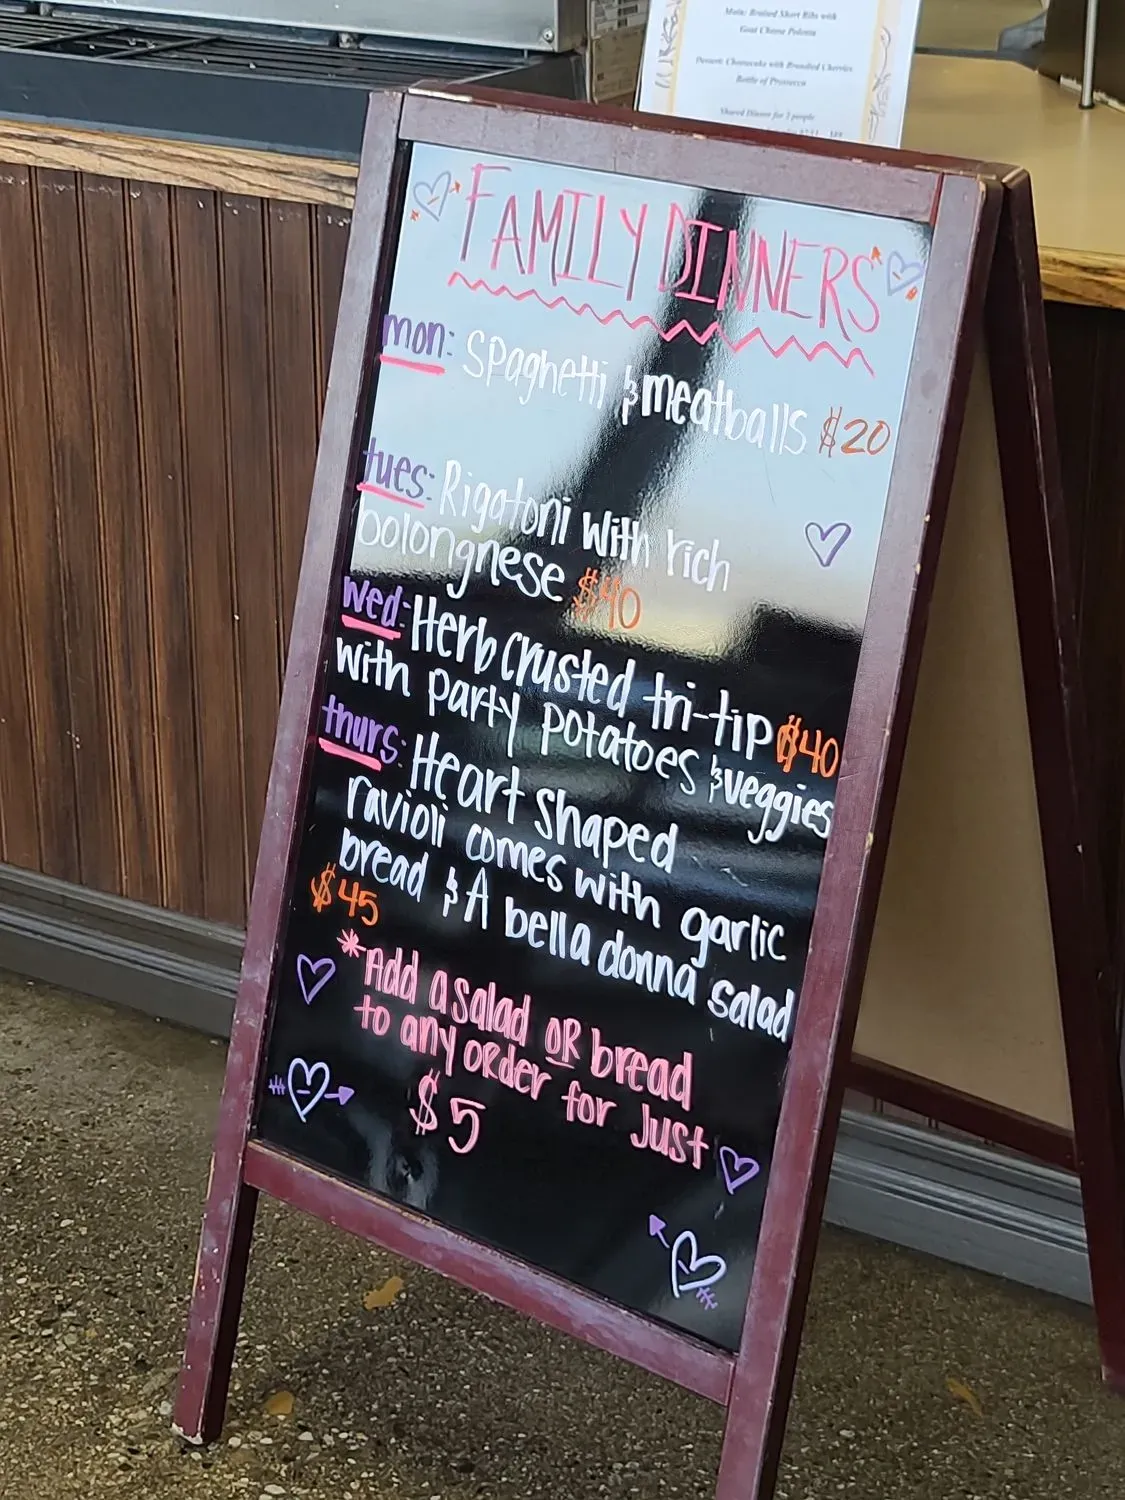 Main: Braised Short Ribs with
Goat Cheese Polenta
Dessert: Cheesecake with Brandied Cherries
Bottle of Prosecco
Shared Dinner for 2 people
FAMILY DINNERS
mon: Spaghetti & meatballs $20
tues: Rigatoni with rich
bolongnese $40
wed: Herb crusted tri-tip $40
with party potatoes & veggies
thurs: Heart shaped
ravioli comes with garlic
bread & A bella donna salad
$45
*Add a salad OR bread
to any order for Just
$5